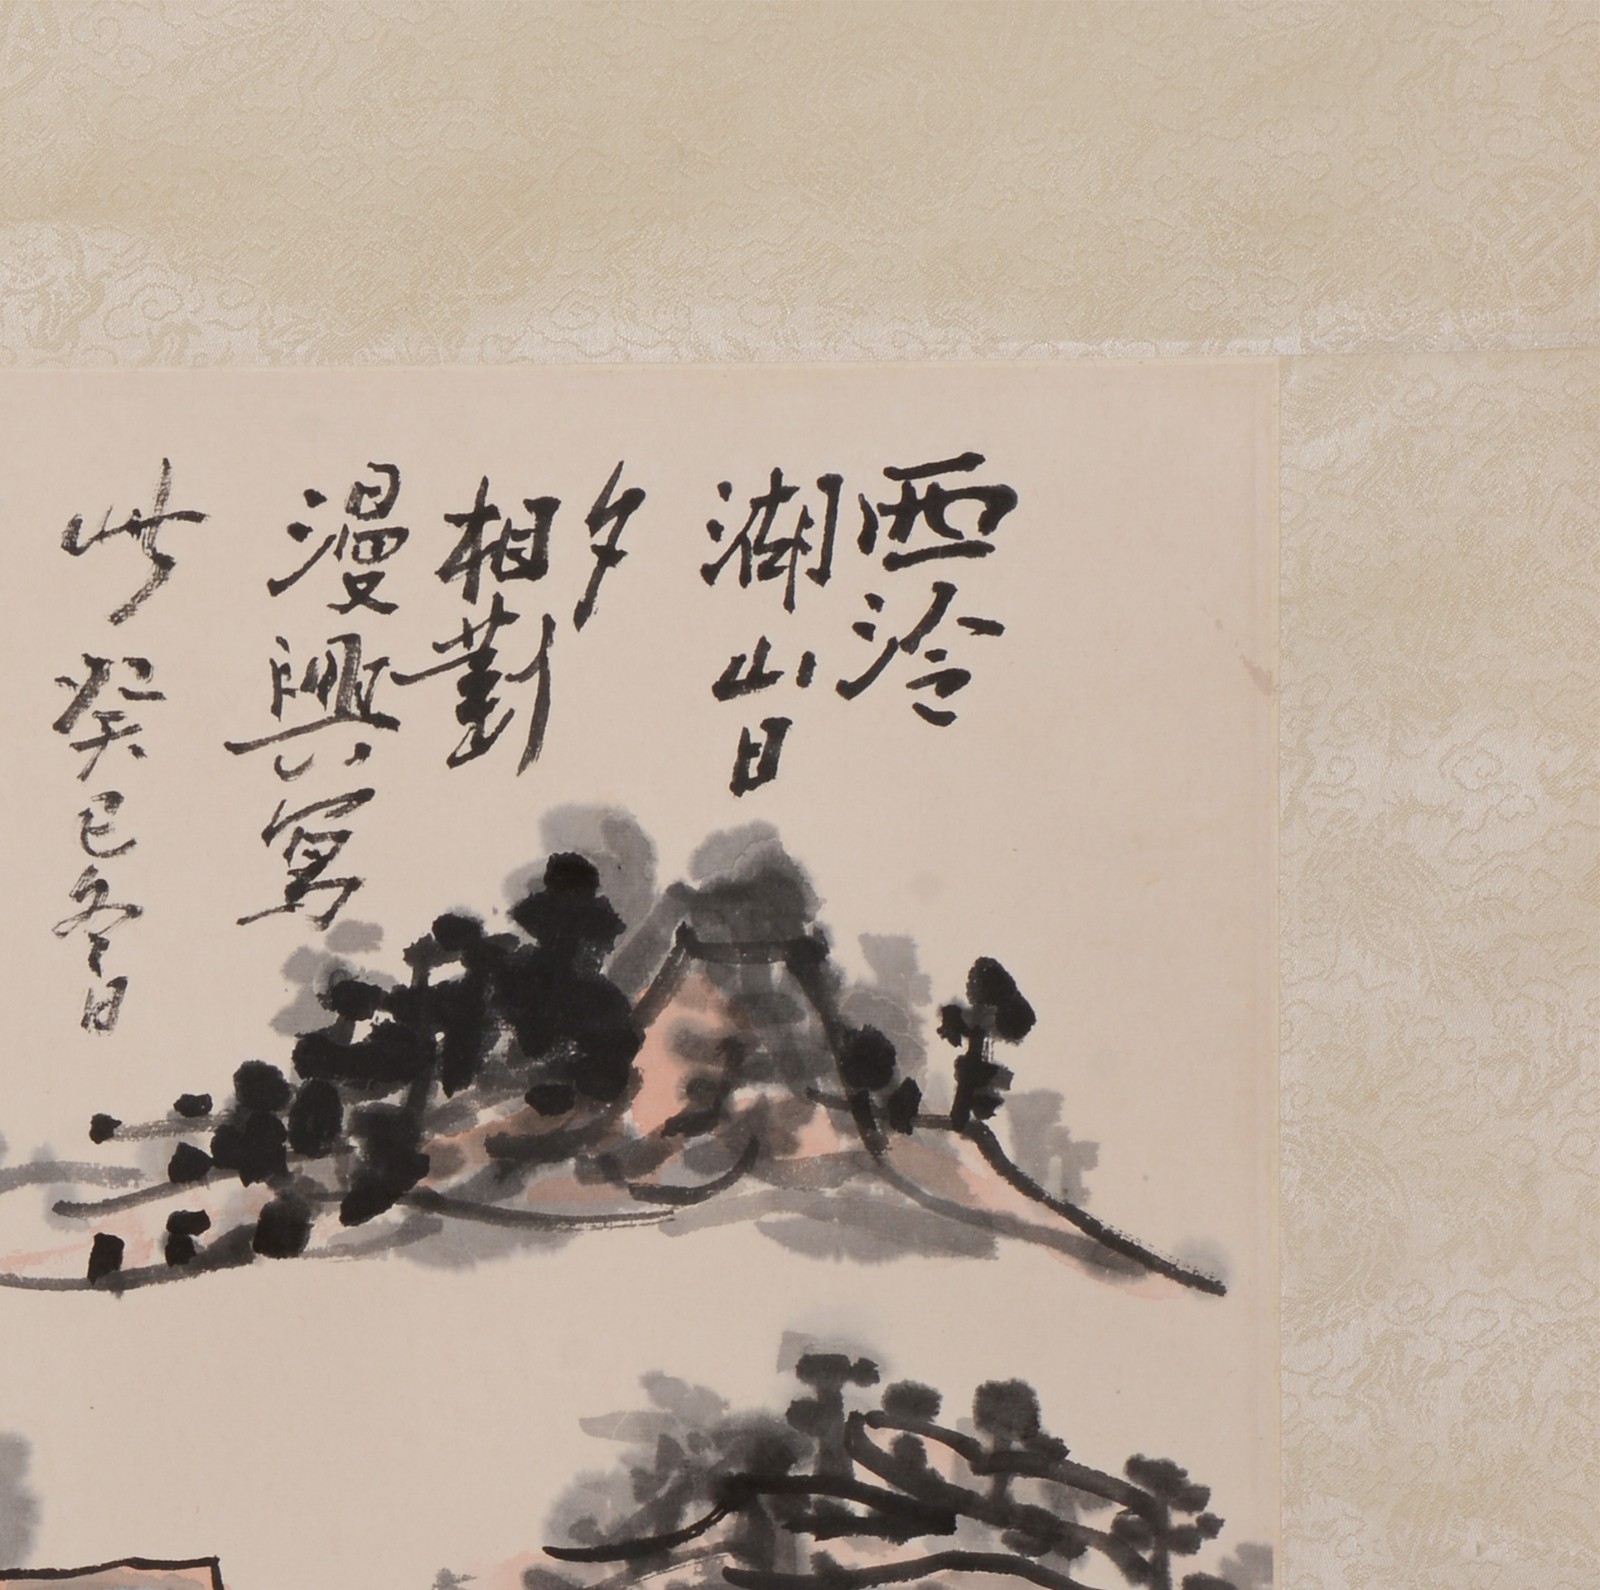 西泠
湖山日
夕
相對
漫興寫
此癸巳冬日